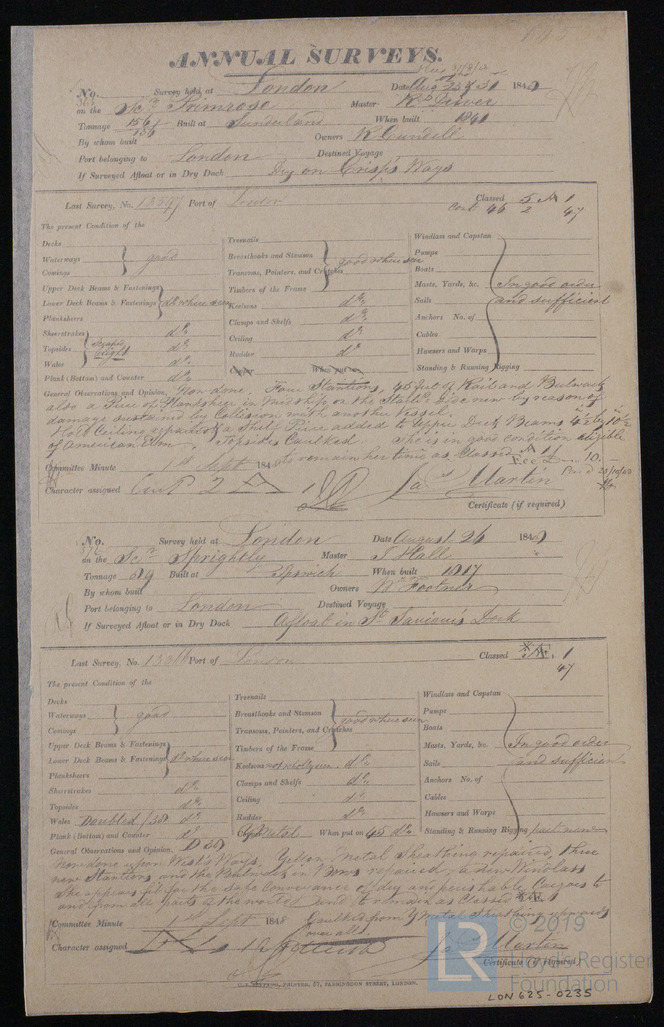 ANNUAL SURVEYS.
No. Survey held at London Date Aug 23 & 31 184
on the Scr Primrose Master
Tonnage 156 Built at Sunderland When built 1841
By whom built Owners R Cundell
Port belonging to London Destined Voyage
If Surveyed Afloat or in Dry Dock Dry on Crisp's Ways
Last Survey, No. Port of London Classed 5 A 1
Cont 46 2 47
The present Condition of the
Decks
Waterways good
Comings
Upper Deck Beams & Fastenings
Lower Deck Beams & Fastenings do where seen
Planksheers
Sheerstrakes do
Topsides
Wales do
Plank (Bottom) and Counter do
Treenails
Breasthooks and Stemson good where seen
Transoms, Pointers, and Crutches
Timbers of the Frame
Keelsons do
Clamps and Shelfs do
Ceiling do
Rudder do
Windlass and Capstan
Pumps
Boats
Masts, Yards, &c. In good order
Sails and sufficient
Anchors No. of
Cables
Hawsers and Warps
Standing & Running Rigging
General Observations and Opinion, Now done. Four Stantions, 45 feet of Rail and Bulwark
also a Piece of Planksheer in Midship on the Side new by reason of
damage sustained by Collision with another Vessel.
Hold Ceiling repaired & a Shelf Piece added to Upper Deck Beams
of American Elm. Topsides Caulked She is in good condition eligible
to remain her time as Classed
Committee Minute 1st Sept 184
Character assigned Cont 2 A 1 Jas Martin
Certificate (if required)
No. Survey held at London Date August 26 184
on the Scr Sprightly Master J Hall
Tonnage Built at Ipswich When built 1817
By whom built Owners Wm Footner
Port belonging to London Destined Voyage
If Surveyed Afloat or in Dry Dock Afloat in St Saviour's Dock
Last Survey, No. Port of London Classed 1
47
The present Condition of the
Decks
Waterways good
Comings
Upper Deck Beams & Fastenings
Lower Deck Beams & Fastenings do where seen
Planksheers
Sheerstrakes do
Topsides do
Wales Doubled do
Plank (Bottom) and Counter
Treenails
Breasthooks and Stemson good where seen
Transoms, Pointers, and Crutches
Timbers of the Frame
Keelsons do
Clamps and Shelfs do
Ceiling do
Rudder do
When put on 45 do
Windlass and Capstan
Pumps
Boats
Masts, Yards, &c. In good order
Sails and sufficient
Anchors No. of
Cables
Hawsers and Warps
Standing & Running Rigging part new
General Observations and Opinion,
Now done upon West's Ways, Yellow Metal Sheathing repaired, three
new Stantions and the Bulwark in Bows repaired, a new Windlass
She appears fit for the safe Conveyance of dry and perishable Cargoes to
and from all parts of the world and to remain as Classed
Caulked from Y Metal Sheathing upwards
Committee Minute 1st Sept 184 over all.
Character assigned Jas Martin
Certificate (if required)
PRINTER, 57, FARRINGDON STREET, LONDON.
© 2019
LR
Lloyd's Register
Foundation
LON625-0235